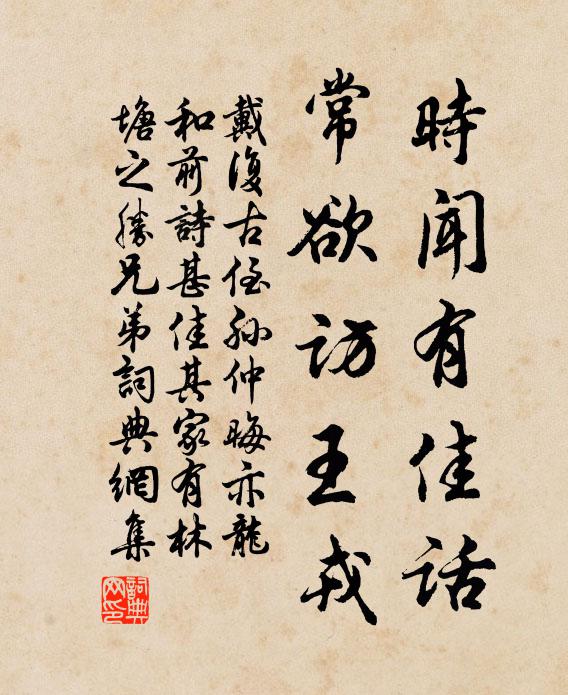 時聞有佳話
常欲訪王戎
戴復古侄孫仲晦亦龍
和前詩甚佳其家有林
塘之勝兄弟詞典網集
詞典網印